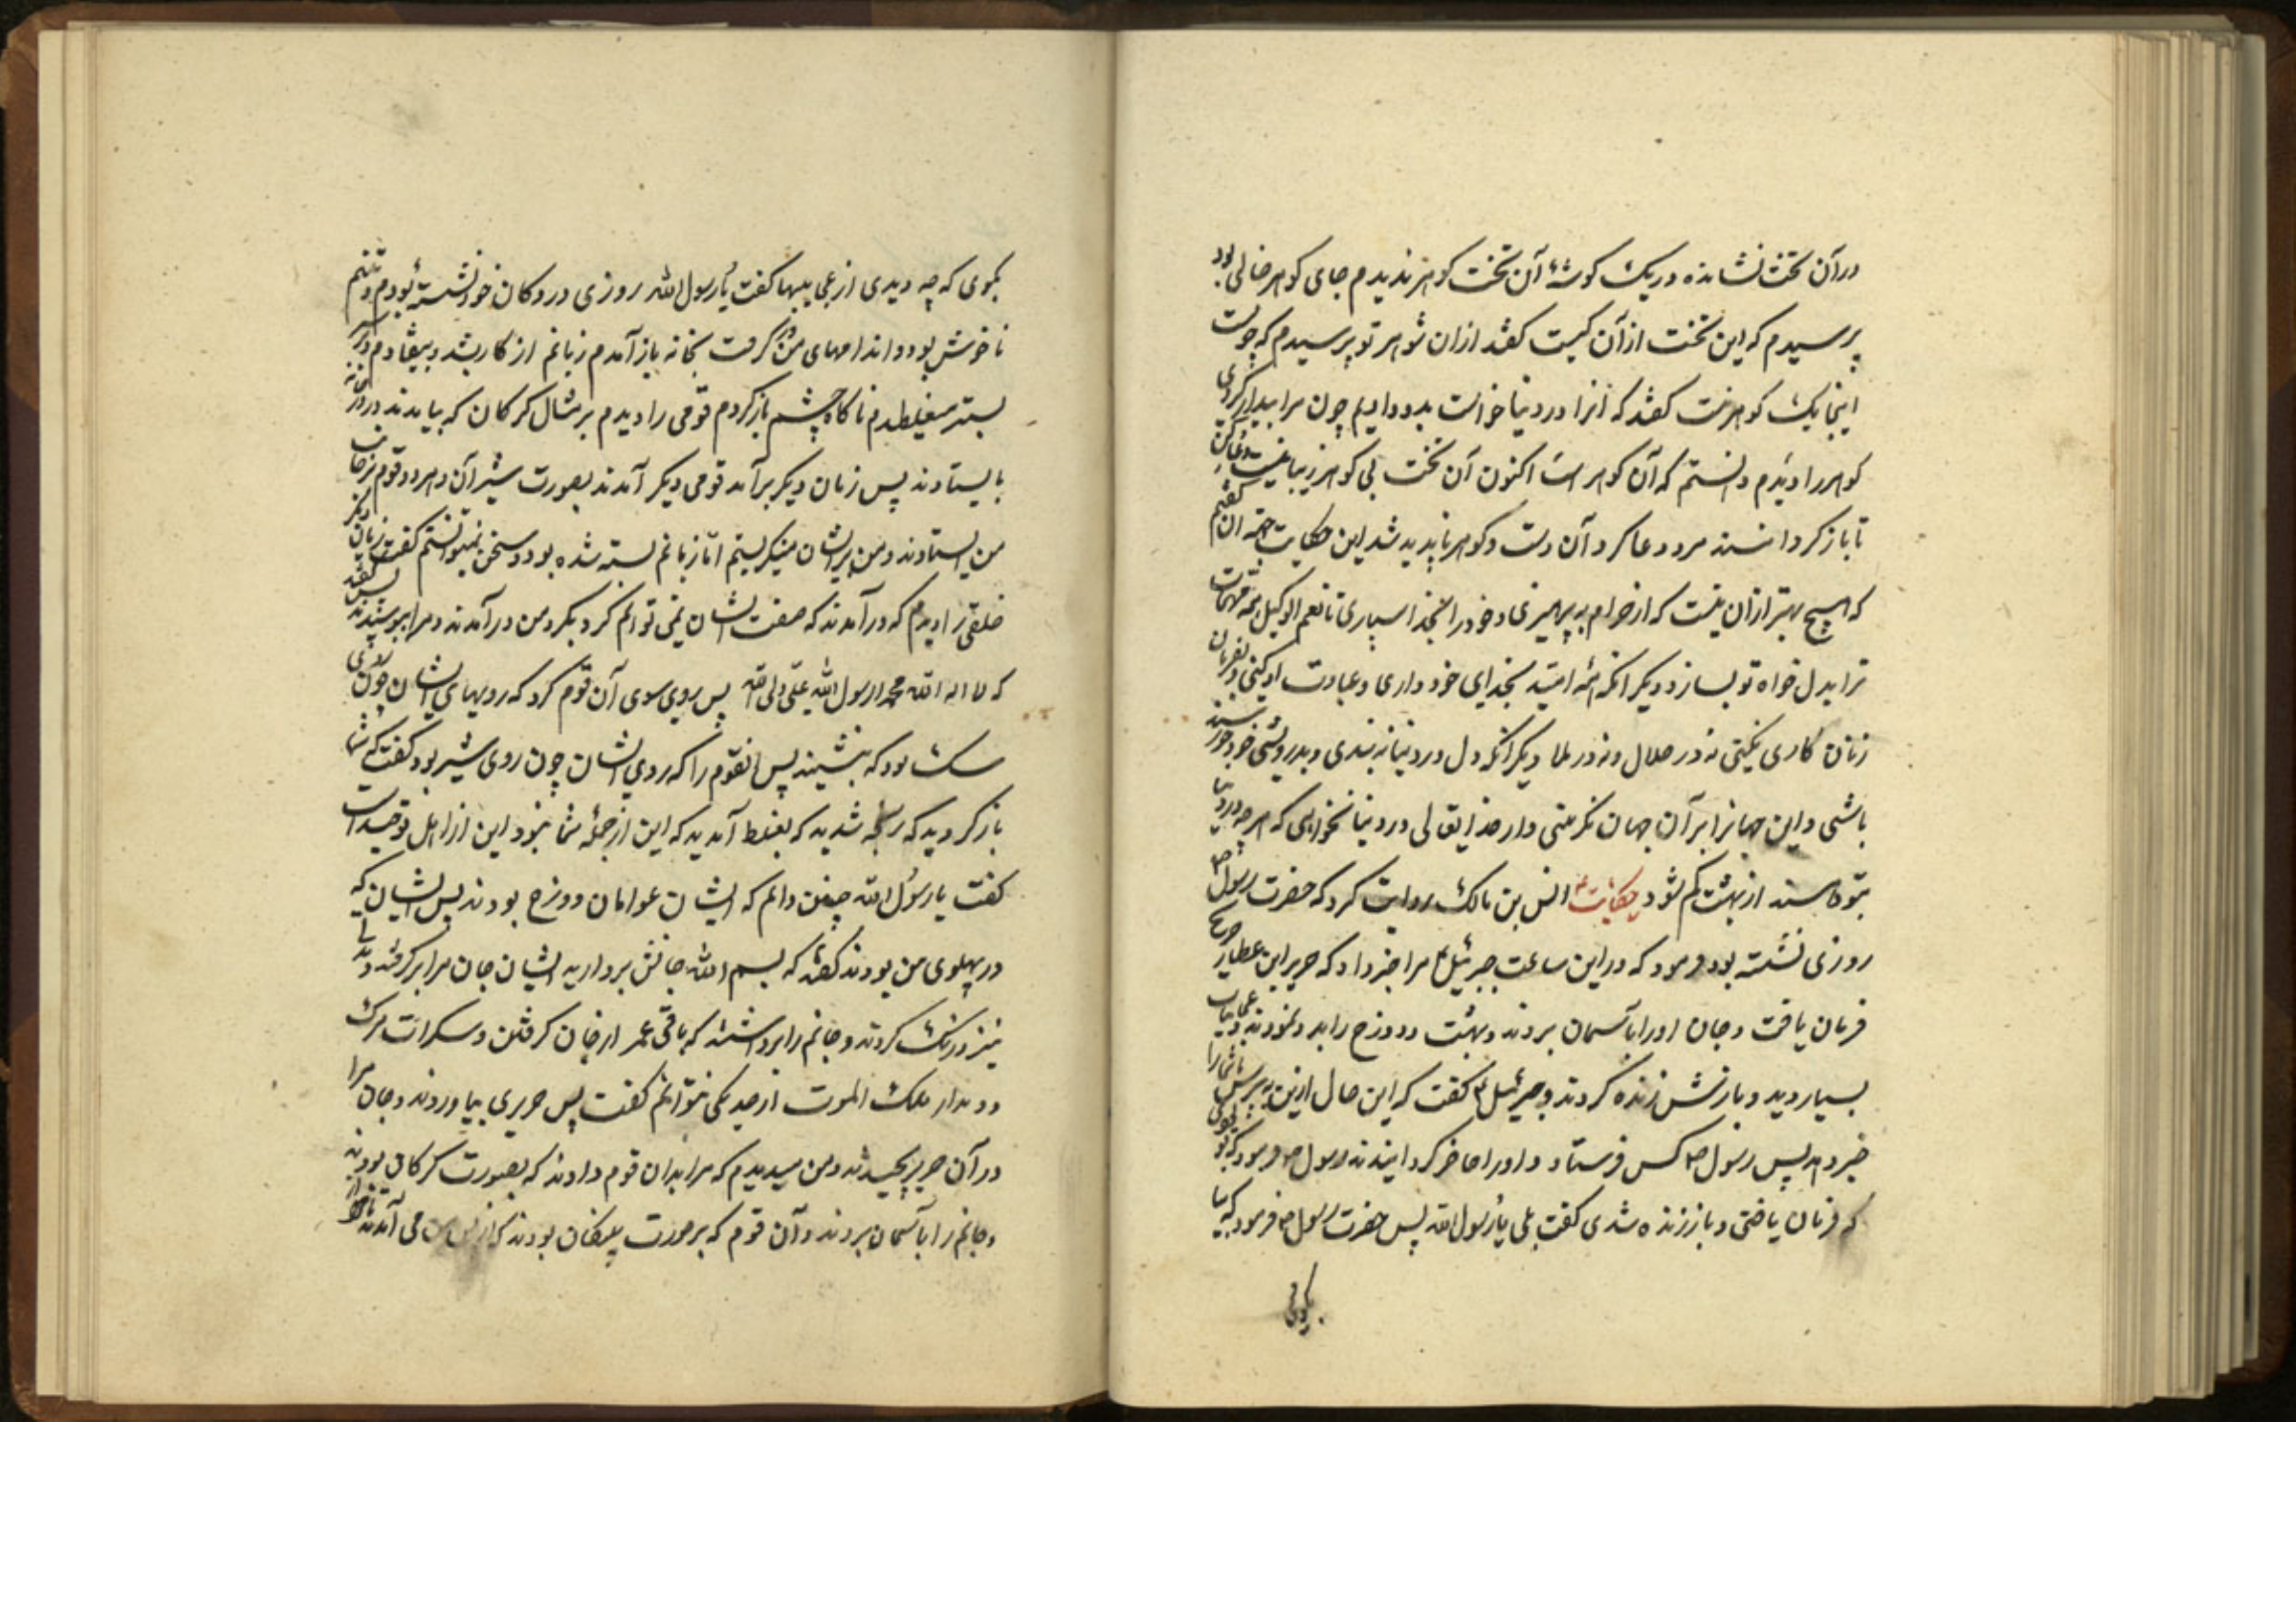 درآن تخت نشانده در یک گوشهٔ آن تخت گوهر ندیدم جای گوهر خالی بود
پرسیدم که این تخت ازآن کیست گفتند ازان شوهر تو پرسیدم که چونست
اینجا یک گوهر نیست گفتند که آنرا در دنیا خواست بدو دادیم چون مرا بیدار کردی
گوهر را دیدم دانستم که آن گوهر است اکنون آن تخت بی گوهر زیبا نیست دعا کن
تا باز گردانند مرد دعا کرد آن دست و گوهر ناپدید شد این حکایت جهة آن گفتیم
که هیچ بهتر ازان نیست که از حرام به پرهیزی و خود را بخدا سپاری تا نعم الوکیل همه مهمات
ترا بدل خواه تو بسازد و دیگر آنکه همه امید بخدای خود داری و عبادت او کنی و بفرمان
زنان کاری نکنی نه در حلال و نه در بلا دیگر آنکه دل در دنیا نه بندی و بدرویشی خود خورسند
باشی و این جهانرا بر آن جهان نگزینی و از خدایتعالی در دنیا نخواهی که هرچه در دنیا
بتو رسد از بهشت کم شود حکایت انس بن مالک روایت کرد که حضرت رسول ص
روزی نشسته بود فرمود که دراین ساعت جبرئیل مرا خبر داد که حریر ابن عطار
فرمان یافت و جان اورا بآسمان بردند و بهشت و دوزخ را بدو نمودند و عجایب
بسیار دید و بازش زنده کردند و جبرئیل گفت که این حال ازین به پرس تا شما را
خبر دهد پس رسول ص کس فرستاد و اورا حاضر گردانیدند رسول ص فرمود که تو
که فرمان یافتی و باز زنده شدی گفت بلی یا رسول الله پس حضرت رسول ص فرمود که بیا
بگوی
بگوی که چه دیدی از عجایبها گفت یا رسول الله روزی در دکان خود نشسته بودم و تنم
ناخوش بود و اندامهای من گرفت بخانه باز آمدم زبانم از کار بشد و بیفتادم و بر
بستر میغلطیدم ناگاه چشم باز کردم قومی را دیدم بر مثال گرگان که بیامدند و در خانه
بایستادند پس زمان دیگر برآمد قومی دیگر آمدند بصورت شیران و هر دو قوم بر جانب
من ایستادند و من برایشان مینگریستم امّا زبانم بسته شده بود و سخن نمیتوانستم گفت زمان دیگر
خلقی را دیدم که درآمدند که صفت ایشان نمی توانم کرد بگرد من درآمدند و مرا بپوشیدند پس گفتند
که لا اله الا الله محمد رسول الله علی ولی الله پس روی سوی آن قوم کرد که رویهای ایشان چون روی
سگ بود که بنشینند پس آنقوم را که روی ایشان چون روی شیر بود گفت که شما
باز گردید که رنجه شدید که بغلط آمدید که این از جملهٔ شما نبود این از اهل توحید است
گفت یا رسول الله چنین دانم که ایشان عوانان دوزخ بودند پس ایشان که
در پهلوی من بودند گفتند که بسم الله جانش بردارید ایشان جان مرا برگرفتند و
نیز درنگ کردند و جانم را برداشتند که باقی عمر از جان گرفتن و سکرات مرگ
و دیدار ملک الموت از صد یکی نتوانم گفت پس حریری بیاوردند و جان مرا
در آن حریر پیچیدند و من میدیدم که مرا بدان قوم دادند که بصورت گرگان بودند
و جانم را بآسمان بردند و آن قوم که بر صورت پلنگان بودند که از پس من می آمدند